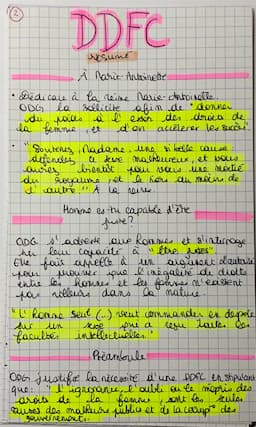 2
DDFC
RÉSUMÉ
À Marie-Antoinette
• Dédicace à la reine Marie-Antoinette.
ODG la sollicite afin de "donner
du poids à l'essor des droits de
la femme, et d'en accélérer les succès.
"Soutenez, Madame, une si belle cause
défendez ce sexe malheureux, et vous
aurez bientôt pour vous une moitié
du royaume et le tiers au moins de
l'autre" À la reine
Homme es-tu capable d'être
juste?
ODG s'adresse aux hommes et s'interroge
sur leur capacité à "être justes"
Elle fait appelle à un argument d'autorité
pour prouver que l'inégalité de droits
entre les hommes et les femmes n'existent
pas ailleurs dans la nature.
"L'homme seul (...) veut commander en despote
sur un sexe qui a reçu toutes les
facultés intellectuelles."
Préambule
ODG justifie la nécessité d'une DDFC en stipulant
que: "l'ignorance, l'oubli ou le mépris des
droits de la femme, sont les seules
causes des malheurs publics et de la corrup° des
gouvernements.